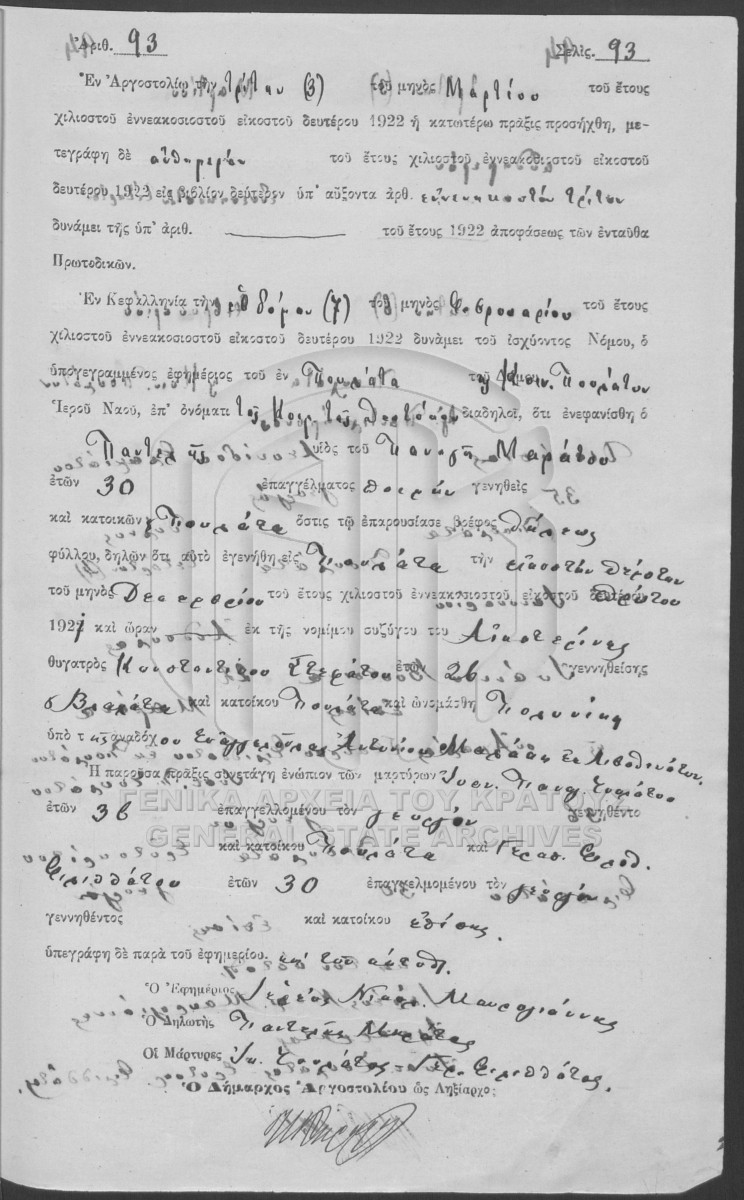 Ἀριθ. 93 Σελὶς. 93
Ἐν Ἀργοστολίῳ τὴν τρίτην (3) τοῦ μηνὸς Μαρτίου τοῦ ἔτους
χιλιοστοῦ ἐννεακοσιοστοῦ εἰκοστοῦ δευτέρου 1922 ἡ κατωτέρω πρᾶξις προσήχθη, με-
τεγράφη δὲ αὐθημερὸν τοῦ ἔτους χιλιοστοῦ ἐννεακοσιοστοῦ εἰκοστοῦ
δευτέρου 1922 εἰς βιβλίον δεύτερον ὑπ' αὔξοντα ἀρθ. ἐννενηκοστὸν τρίτον
δυνάμει τῆς ὑπ' ἀριθ. τοῦ ἔτους 1922 ἀποφάσεως τῶν ἐνταῦθα
Πρωτοδικῶν.
Ἐν Κεφαλληνίᾳ τὴν ἑβδόμην (7) τοῦ μηνὸς Φεβρουαρίου τοῦ ἔτους
χιλιοστοῦ ἐννεακοσιοστοῦ εἰκοστοῦ δευτέρου 1922 δυνάμει τοῦ ἰσχύοντος Νόμου, ὁ
ὑπογεγραμμένος ἐφημέριος τοῦ ἐν Πουλάτα τοῦ Κοιν. Πουλάτων
Ἱεροῦ Ναοῦ, ἐπ' ὀνόματι τῆς Κοιμ. τῆς Θεοτόκου διαδηλοῖ, ὅτι ἐνεφανίσθη ὁ
Παντελῆς υἱὸς τοῦ Παναγῆ Μαράτου
ἐτῶν 30 ἐπαγγέλματος ποιμὴν γενηθεὶς
καὶ κατοικῶν Πουλάτα ὅστις τῷ ἐπαρουσίασε βρέφος θήλεως
φύλλου, δηλῶν ὅτι αὐτὸ ἐγενήθη εἰς Πουλάτα τὴν εἰκοστὴν πέμπτην
τοῦ μηνὸς Δεκεμβρίου τοῦ ἔτους χιλιοστοῦ ἐννεακοσιοστοῦ εἰκοστοῦ πρώτου
1921 καὶ ὥραν ἐκ τῆς νομίμου συζύγου του Αἰκατερίνης
θυγατρὸς Κωνσταντίνου ἐτῶν 26 γεννηθείσης
Βλαχάτα καὶ κατοίκου Πουλάτα καὶ ὠνομάσθη Πολυνίκη
ὑπὸ τῆς ἀναδόχου Εὐαγγελούλας Ἀντωνίου
Ἡ παροῦσα πρᾶξις συνετάγη ἐνώπιον τῶν μαρτύρων Παναγ.
ἐτῶν 36 ἐπαγγελλομένου τὸν γεωργὸν γεννηθέντο
καὶ κατοίκου Πουλάτα καὶ Γερασ.
Φιλιππάτου ἐτῶν 30 ἐπαγγελμομένου τὸν γεωργὸν
γεννηθέντος καὶ κατοίκου ἐπίσης.
ὑπεγράφη δὲ παρὰ τοῦ ἐφημερίου.
Ὁ Ἐφημέριος Ἱερεὺς Νικόλ. Μαυρογιάννης
Ὁ Δηλωτὴς Παντελῆς Μαράτος
Οἱ Μάρτυρες Γερ. Φιλιππάτος.
Ὁ Δήμαρχος Ἀργοστολίου ὡς Ληξίαρχος
ΓΕΝΙΚΑ ΑΡΧΕΙΑ ΤΟΥ ΚΡΑΤΟΥΣ
GENERAL STATE ARCHIVES